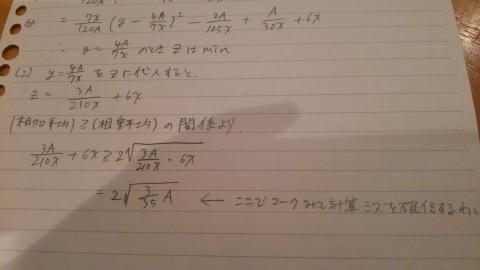 = 7x/120A (y - 4A/7x)² - 2A/105x + A/30x + 6x
∴ y = 4A/7x のとき Z は min
(2) y = 4A/7x を Z に代入すると、
Z = 3A/210x + 6x
(相加平均) ≧ (相乗平均) の関係より
3A/210x + 6x ≧ 2√(3A/210x · 6x)
= 2√(3/35 A) ← ここでマークみて計算ミスを確信するわし